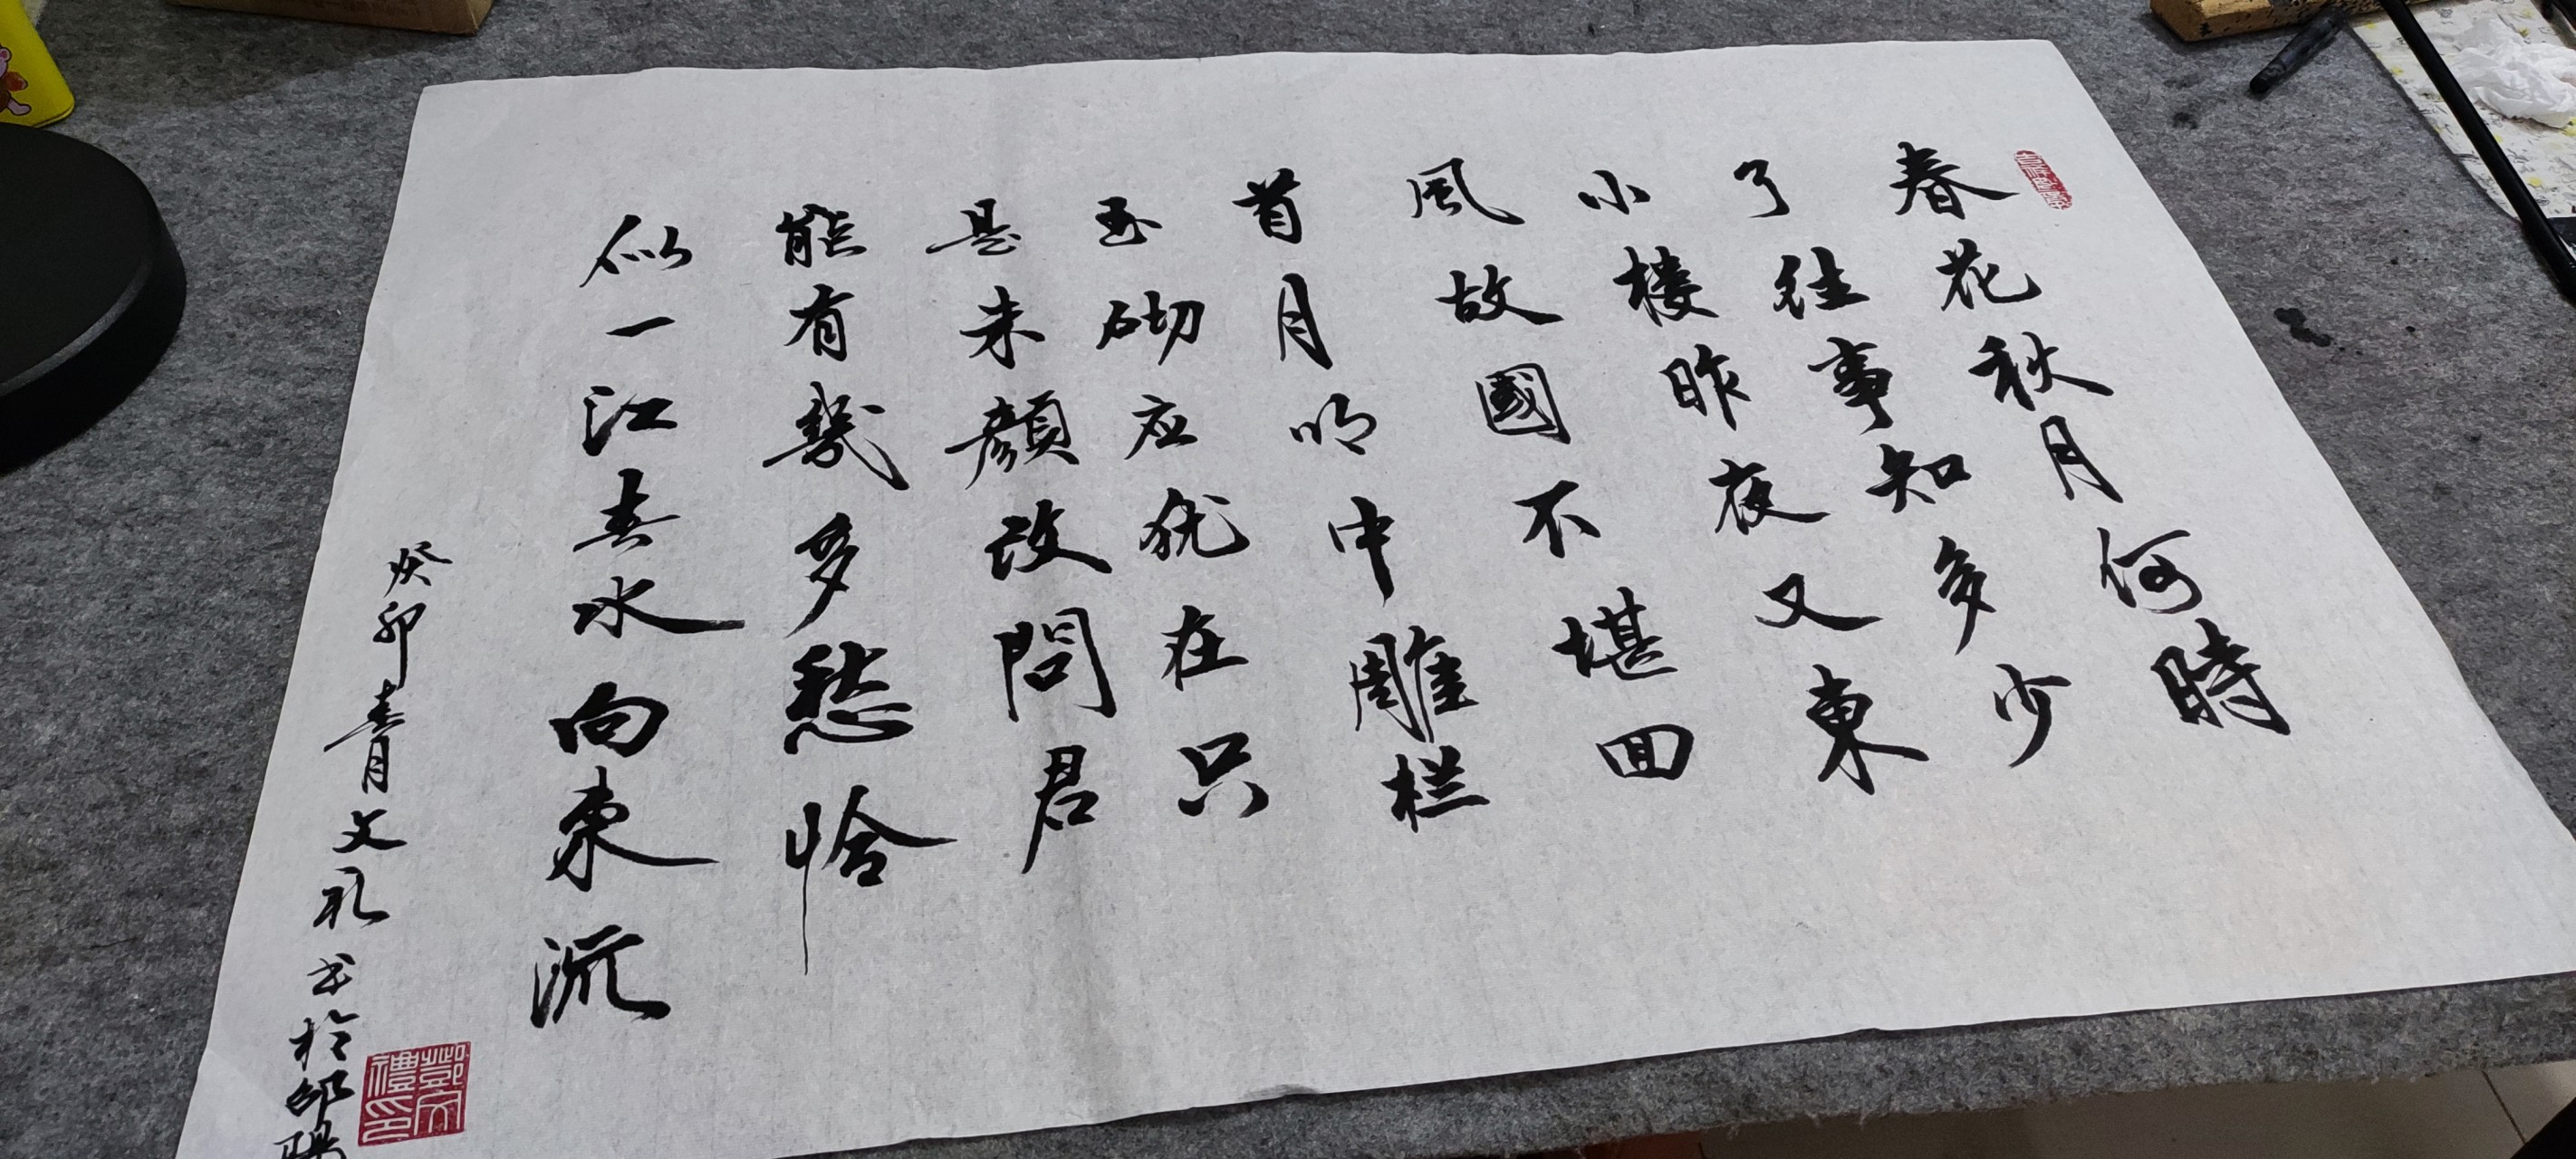 春花秋月何時
了往事知多少
小楼昨夜又東
風故國不堪回
首月明中雕栏
玉砌应犹在只
是朱顔改問君
能有幾多愁恰
似一江春水向東流
癸卯春月文礼书於邵陽
鄧文禮印